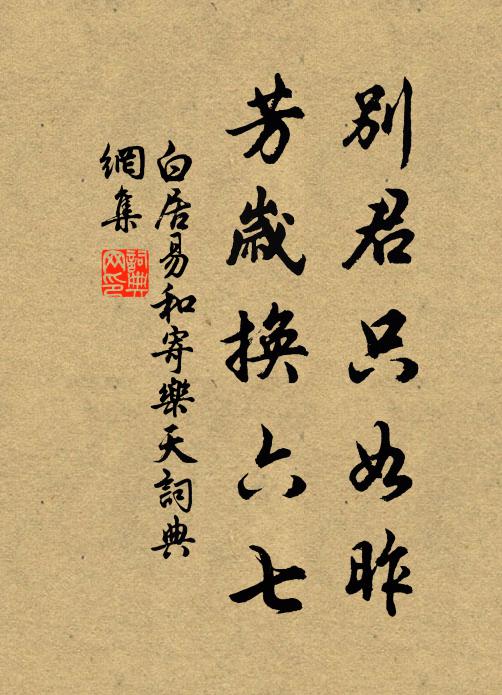 別君只如昨
芳歲換六七
白居易和寄樂天詞典
網集
詞典
网印